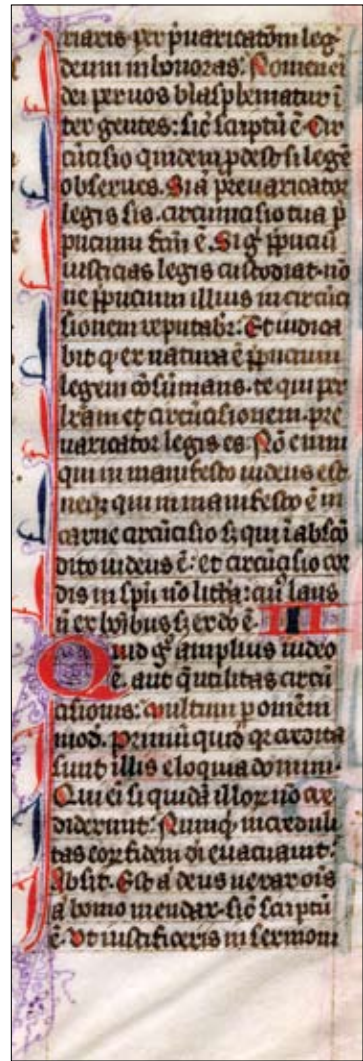 riaris per p̄uaricatōm leg̃
deum inhonoras. Nomen eī
dei per uos blasphematur ī
ter gentes: sic̄ scriptū ē. Cir
cūcisio quidem ꝓdest si legē
obserues. Si ā preuaricator
legis sis. circumcisio tua p̄
pucium fc̄m ē. Si gͦ p̄puciū
iusticias legis custodiat. nō
ne p̄pucium illius in circūci
sionem reputabr̄. Et iudica
bit qͥ ex natura ē p̄pucium
legem cōsūmans. te qui per
lr̄am et circūcisionem. pre
uaricator legis es. Nō enim
qui in manifesto iudeus est
neqꝫ qui in manifesto ē in
carne circūcisio sꝫ qui ī abscō
dito iudeus ē. et circūcisio cor
dis in spū nō litt̄a: cuī laus
n̄ ex hoībus sꝫ ex deo ē. III
Quid gͦ amplius iudeo
ē. aut q̄ utilitas circū
cisionis: Multum ꝑ omēm
mod̄. Primū quid̄ qꝛ credita
sunt illis eloquia domini.
Qui ei si quidā illoꝝ nō cre
diderunt: Nunqͥd increduli
tas eoꝝ fidem dī euacuauit:
Absit. Est ā deus uerax oīs
ā homo mendax. sic̄ scriptū
ē. Vt iustificeris in sermoni